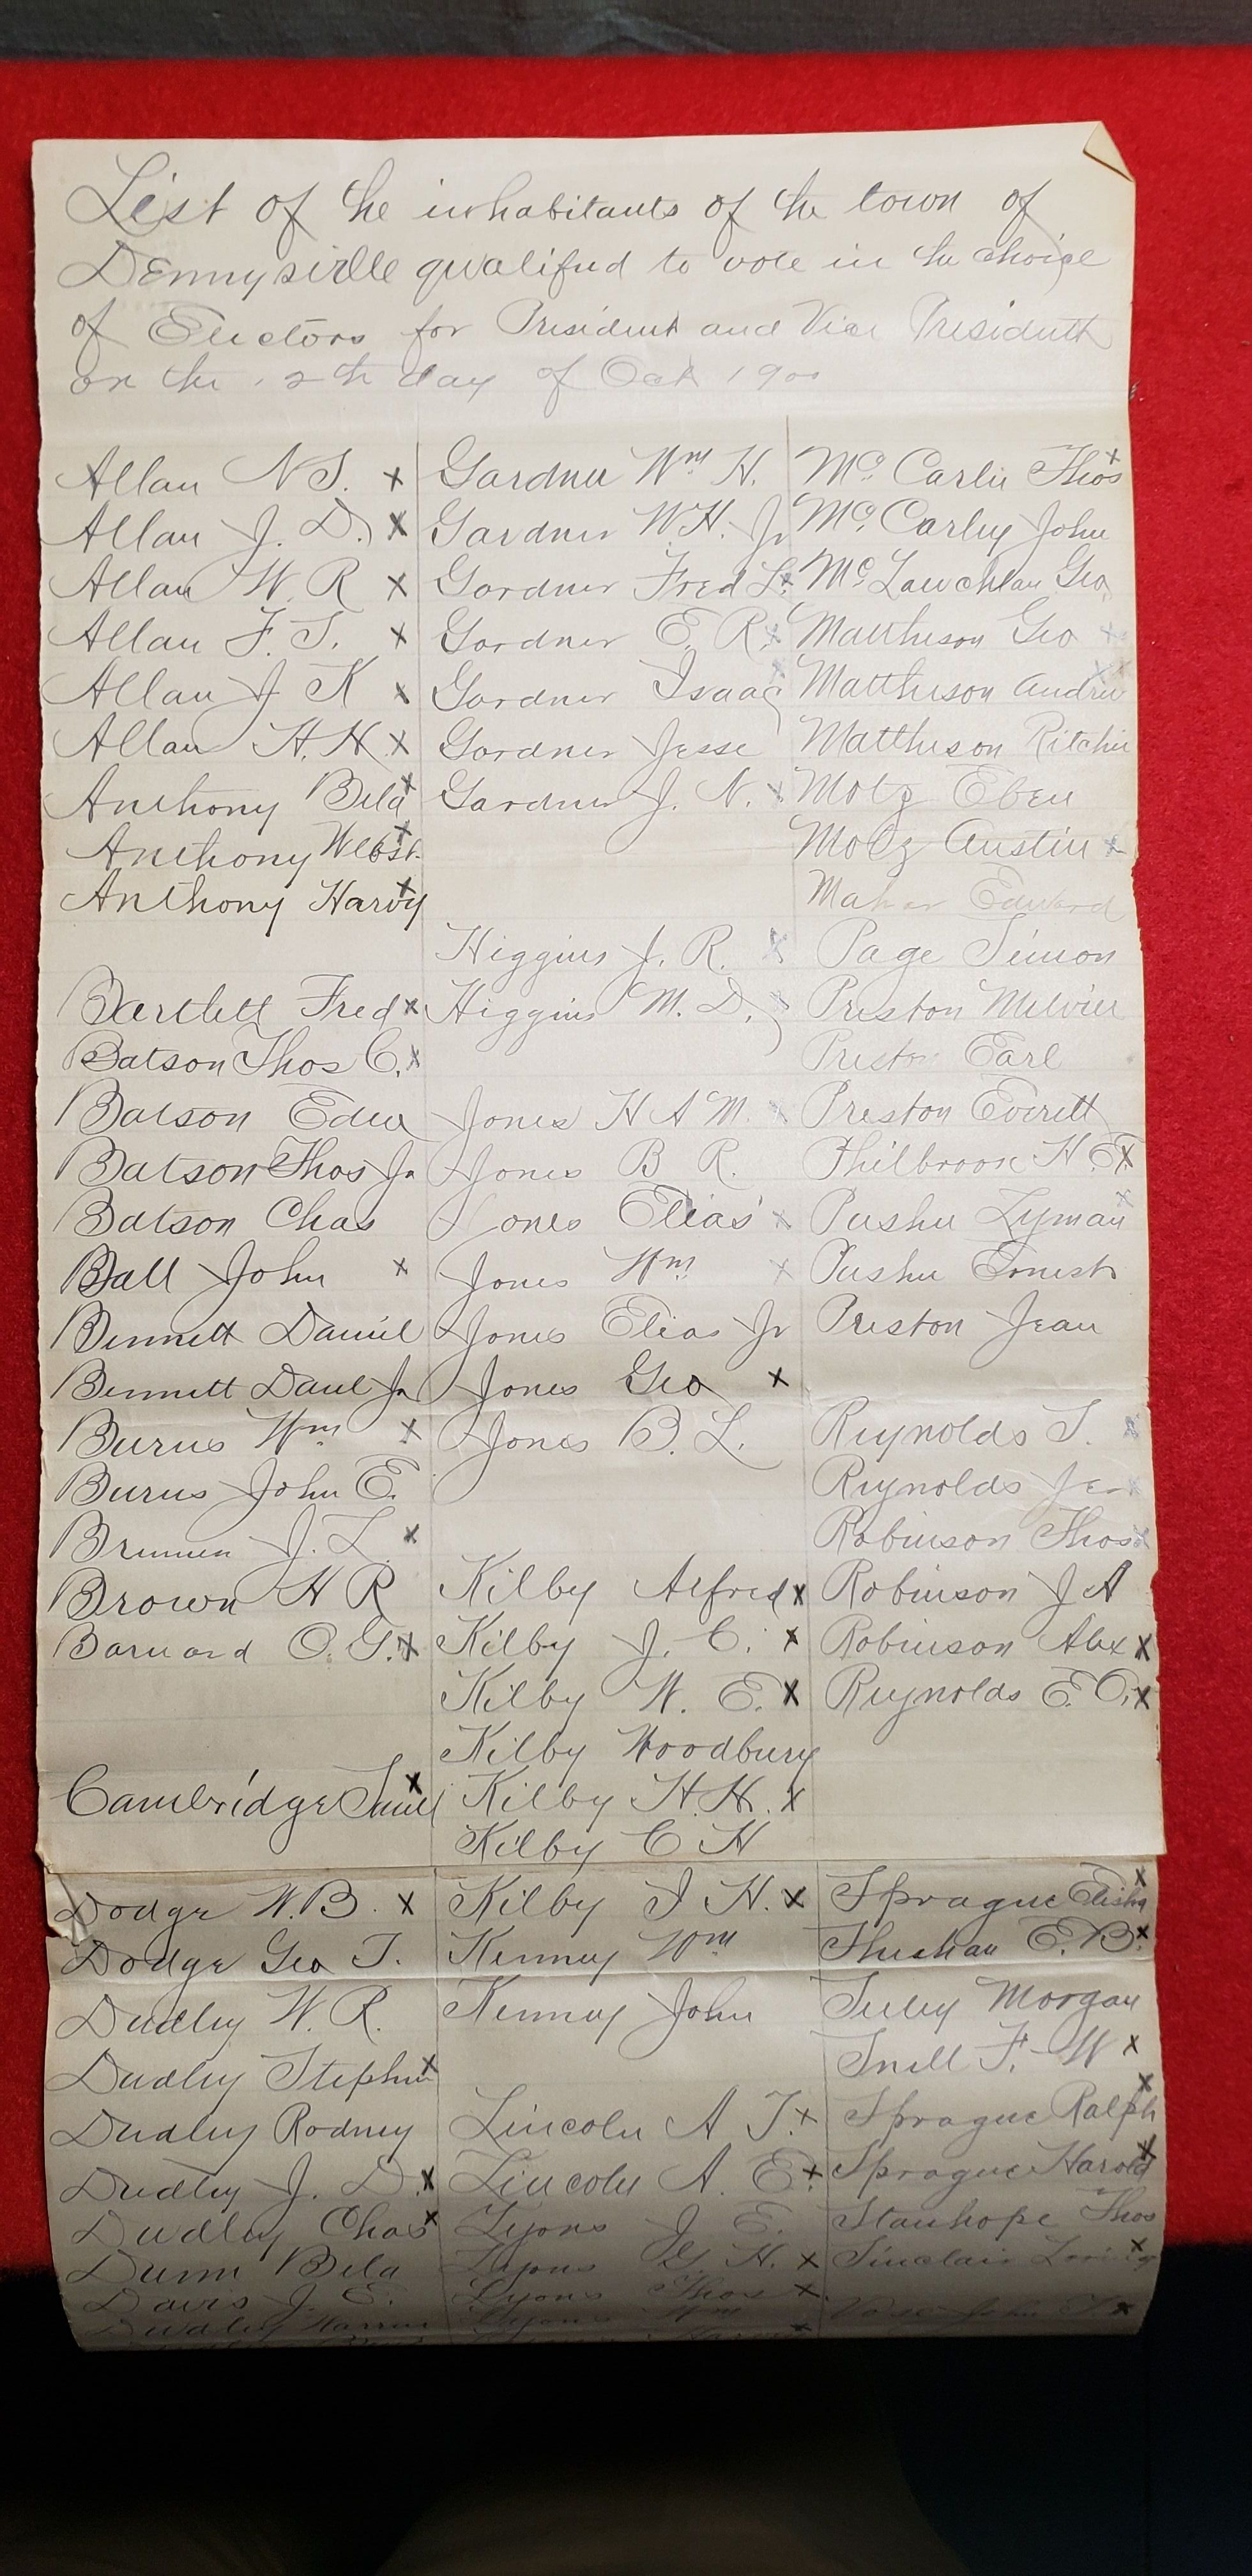 List of the inhabitants of the town of
Dennysville qualified to vote in the choice
of Electors for President and Vice President
on the 12th day of Oct 1900
Allan N S. x
Allan J. D. x
Allan W. R x
Allan F. S. x
Allan J K x
Allan H. H. x
Anthony Bela x
Anthony Webst. x
Anthony Harvy x
Bartlett Fred x
Batson Thos C. x
Batson Edw
Batson Thos Jr
Batson Chas
Ball John x
Bennett Daniel
Bennett Danl Jr
Burns Wm x
Burns John E.
J. L. x
Brown H R
Barnard O. G. x
Cambridge Saml x
Dodge W. B. x
Dodge Geo T.
Dudley W. R.
Dudley Stephen x
Dudley Rodney
Dudley J. D. x
Dudley Chas x
Dunn Bela
Davis J. E.
Dudley
Gardner Wm H.
Gardner W. H. Jr
Gardner Fred L. x
Gardner E. R. x
Gardner Isaac x
Gardner Jesse
Gardner J. N. x
Higgins J. R. x
Higgins M. D. x
Jones H A M. x
Jones B R.
Jones Elias x
Jones Wm x
Jones Elias Jr
Jones Geo x
Jones B. L.
Kilby Alfred x
Kilby J. C. x
Kilby W. E. x
Kilby Woodbury
Kilby H. H. x
Kilby C H
Kilby I H. x
Kenney Wm
Kenney John
Lincoln A T. x
Lincoln A. E. x
Lyons J E.
Lyons G. H. x
Lyons Thos x
Lyons Wm
Mc Carlie Thos x
Mc Carley John
Mc Lauchlan Geo
Mattheson Geo x
Mattheson Andrew x
Mattheson Ritchie
Motz Eben
Motz Austin x
Maher Edward
Page Simon
Preston Melvin
Preston Earl
Preston Everett
Philbrook H. E x
Pushee Lyman x
Pushee Ernest
Preston Jean
Reynolds T. x
Reynolds x
Robinson Thos x
Robinson J A
Robinson Alex x
Reynolds E. C. x
Sprague Elisha x
E. B. x
Morgan
Snell F. W x
Sprague Ralph x
Sprague Harold x
Stanhope Thos
Sinclair x
John x